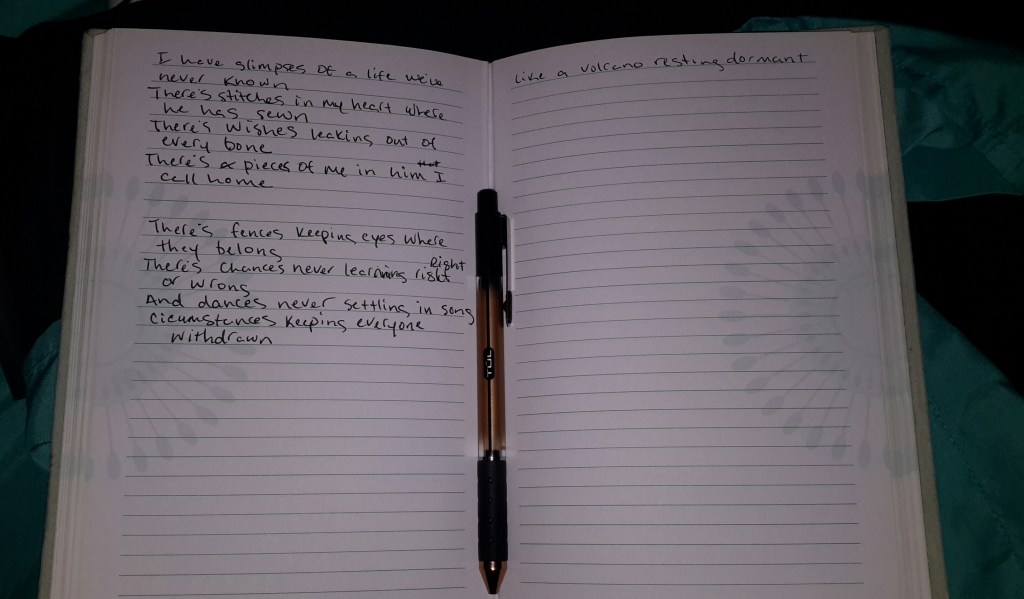 I have glimpses of a life we've
never known
There's stitches in my heart where
he has sewn
There's wishes leaking out of
every bone
There's pieces of me in him I
call home
There's fences keeping eyes where
they belong
There's chances never learning right
or wrong
And dances never settling in song
circumstances keeping everyone
withdrawn
Like a volcano resting dormant
TUL